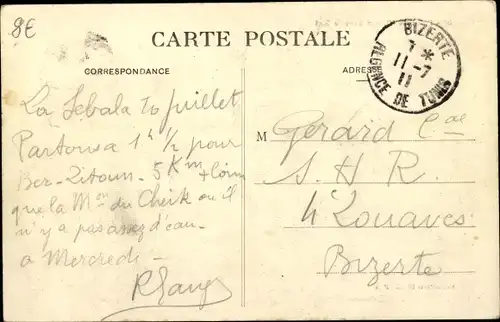 8E
CARTE POSTALE
CORRESPONDANCE
ADRES
BIZERTE
7 *
11 - 7
11
RÉGENCE DE TUNIS
La Sebala 10 juillet
Partons a 1h 1/2 pour
Bar-Zitoun. 5 Km + loin
que la Mon du Cheik où il
n'y a pas assez d'eau -
a Mercredi -
M Gérard Cal
S. H. R.
4 Zouaves
Bizerte